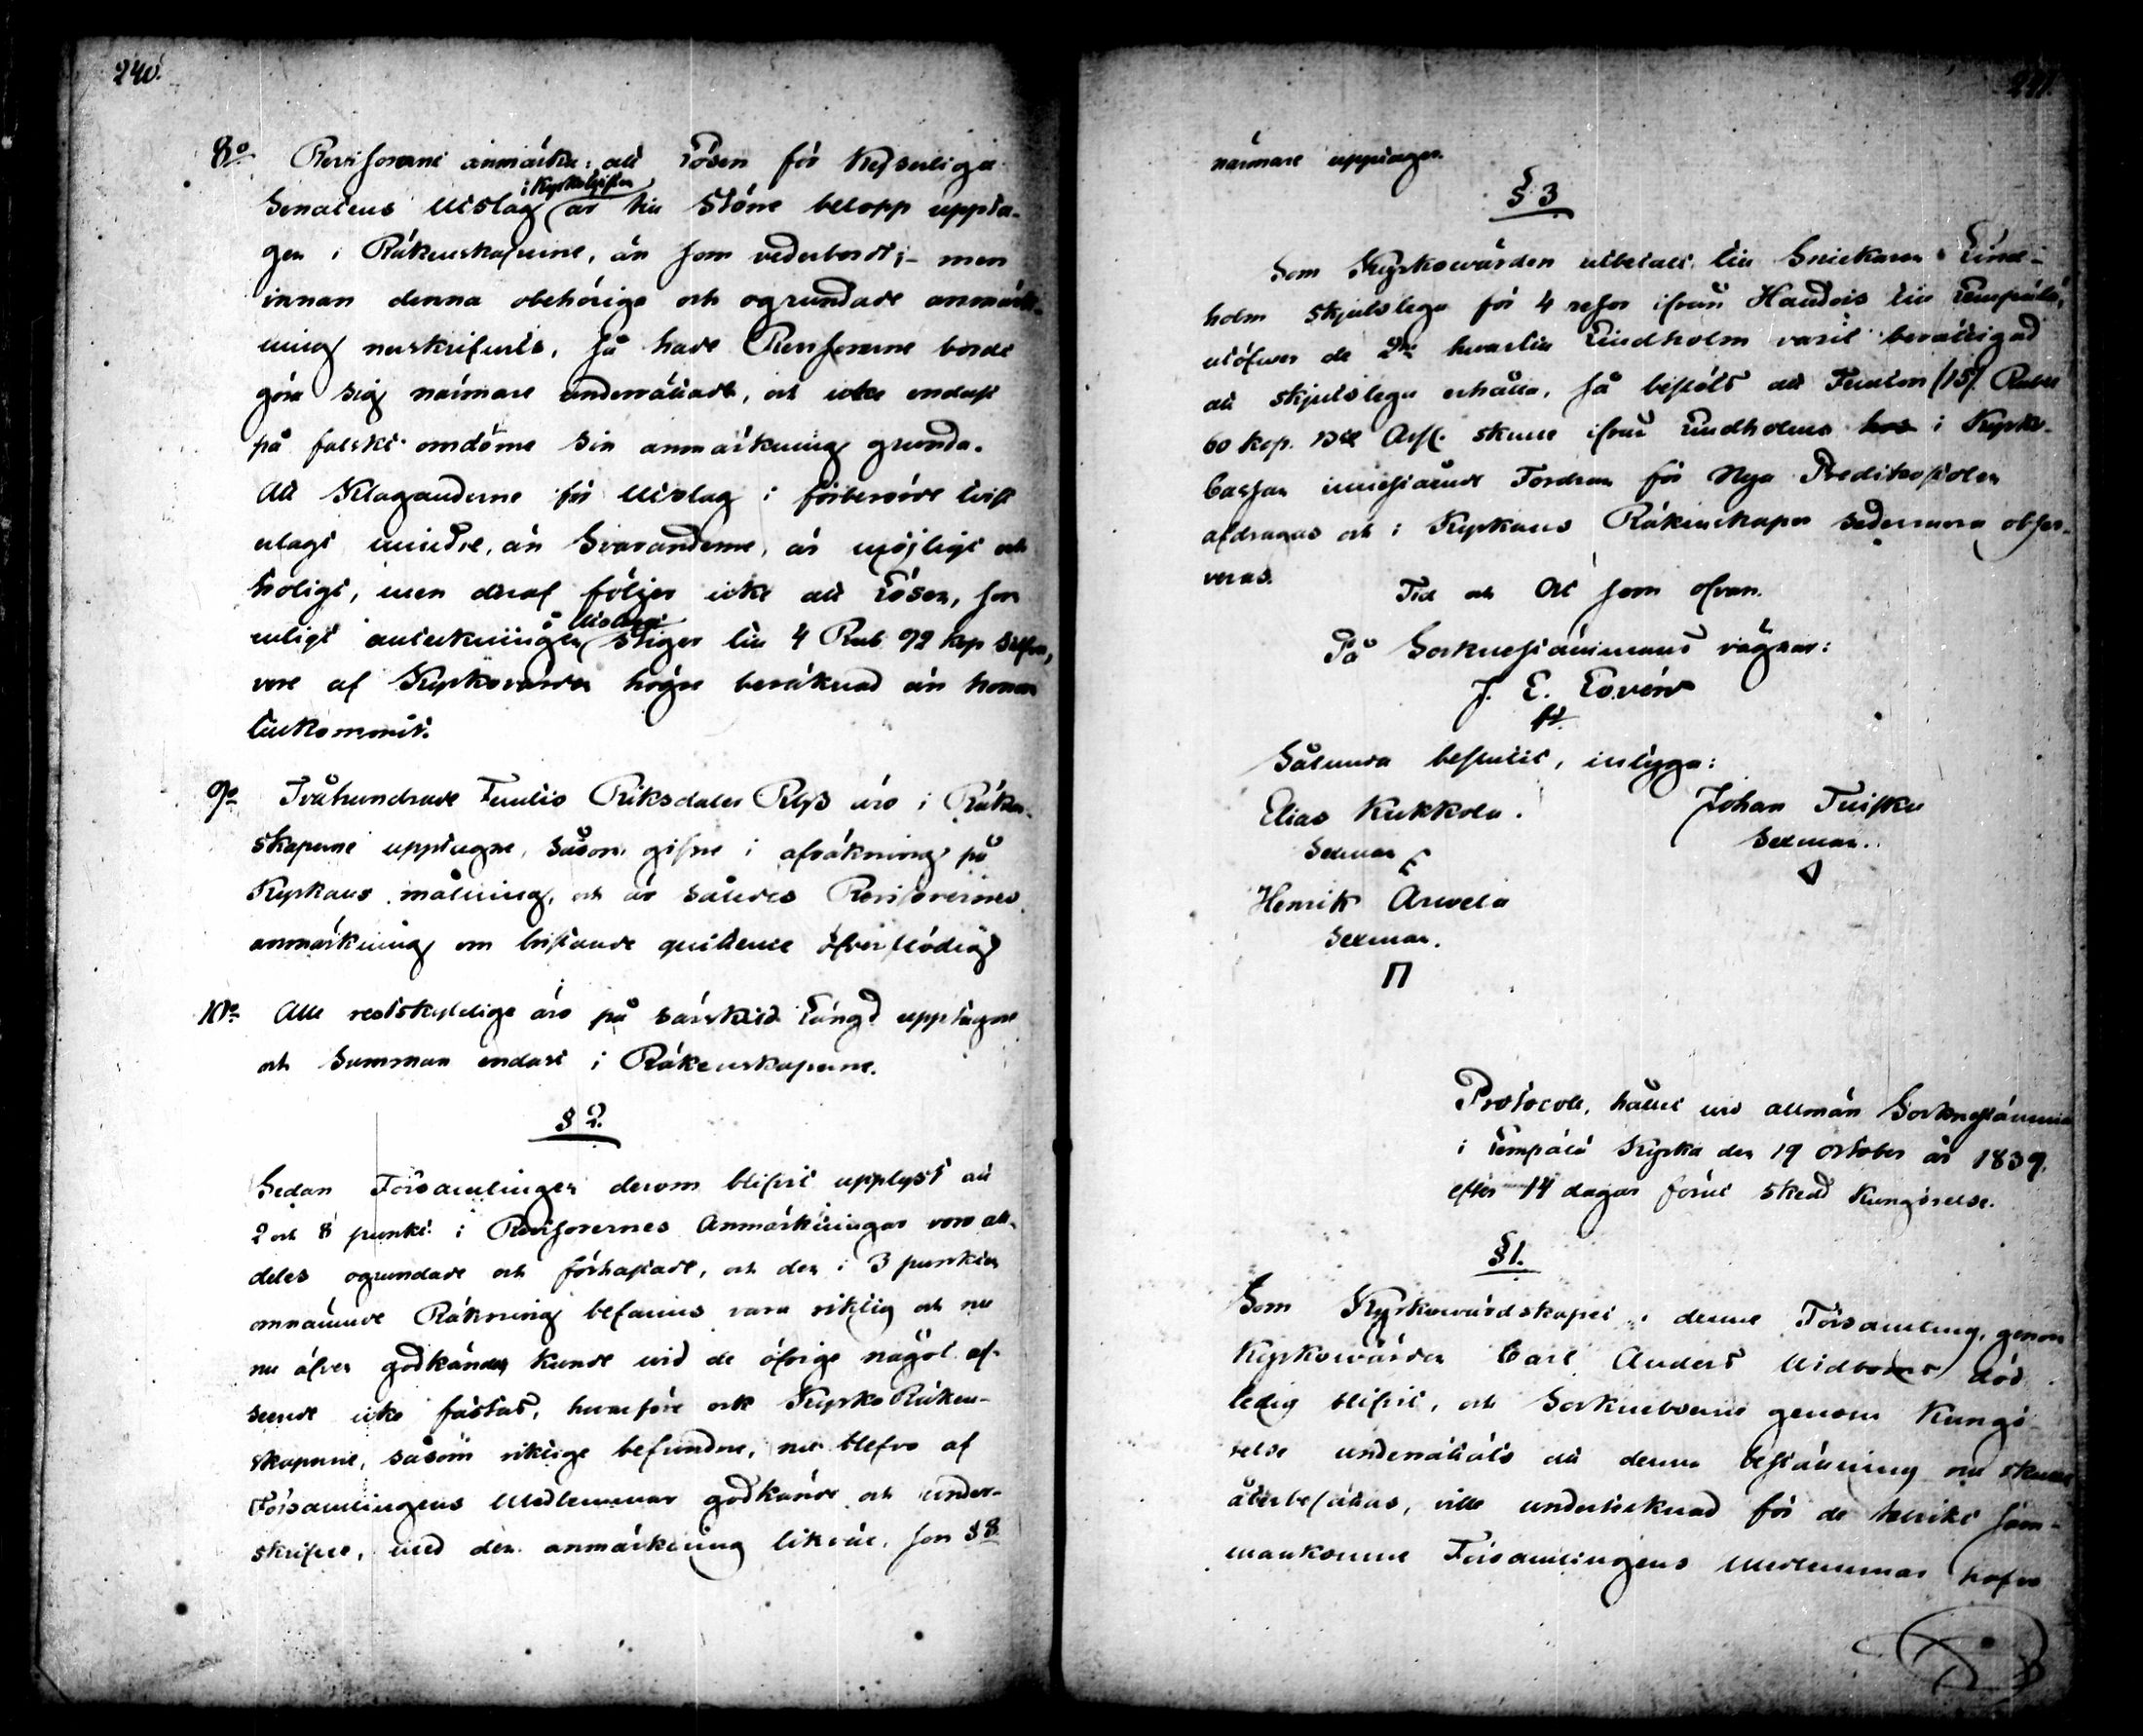 240.
8o Revisorerne anmärka: att Lösen för Kejserliga
Senatens Utslag i Kyrkotvisten är till större belopp uppta-
gen i Räkenskaperne, än som vederbordt; - men
innan denna obehöriga och ogrundade anmärk-
ning nerskrifvits, så hade Revisorerne bordt
göra sig närmare underrättade, och icke endast
på falskt omdöme sin anmärkning grunda.
Att Klaganderne för Utslag i förberörde tvist
utlagt mindre, än Svaranderne, är möjligt och
troligt, men deraf följer icke att Lösen, som
enligt anteckningen å Utslaget stiger till 4 Rub 92 kop Silfver,
vore af Kyrkovärden högre beräknad än honom
tillkommit.
9o Tvåhundrade Femtio Riksdaler Rgs äro i Räken-
skaperne upptagne, såsom gifne i afräkning på
Kyrkans målning, och är således Revisorernes
anmärkning om bristande quittence öfverflödig
10o Alle restskyldige äro på särskild Längd upptagne
och Summan endast i Räkenskaperne.
§ 2.
Sedan Församlingen derom blifvit upplyst att
2 och 8 punkt. i Revisorernes Anmärkningar voro all-
deles ogrundade och förhastade, och den i 3 punkten
omnämnde Räkning befanns vara riktig och nu
nu äfven godkändes kunde vid de öfrige något af-
seende icke fästas, hvarföre ock Kyrko Räken-
skaperne, såsom riktige befundne, nu blefvo af
Församlingens Medlemmar godkände och under-
skrifne, med den anmärkning likväl, som § 8
241.
närmare upptager.
§ 3
Som Kyrkovärden utbetalt till Snickaren Lind-
holm skjutslega för 4 resor ifrån Haudois till Lempälä,
utöfver de 2ne hvartill Lindholm varit berättigad
att skjutslega erhålla, så beslöts att Femton (15) Rubel
60 kop. Bco Ass. skulle ifrån Lindholms hos i Kyrko-
Cassan innestående Fordran för Nya Predikostolen
afdragas och i Kyrkans Räkenskaper sedermera obser-
veras.
Tid och Ort som ofvan.
På Socknestämmans vägnar:
J. E. Lovén
Sålunda beslutit, intyga:
Elias Kukkola.
Sexman
Johan Tuisku
Sexman.
Henrik Arwela
Sexman.
Protocoll, hållit vid allmän Socknestämma
i Lempälä Kyrka den 19 October år 1839.
efter 14 dagar förut skedd Kungörelse.
§ 1.
Som Kyrkovärdskapet i denne Församling, genom
Kyrkovärden Carl Anders Widboms död
ledig blifvit, och Sockneboerne genom Kungö-
relse underrättats att denna beställning nu skulle
återbesättas, ville undertecknad för de talrikt sam-
mankomne Församlingens Medlemmar hafva